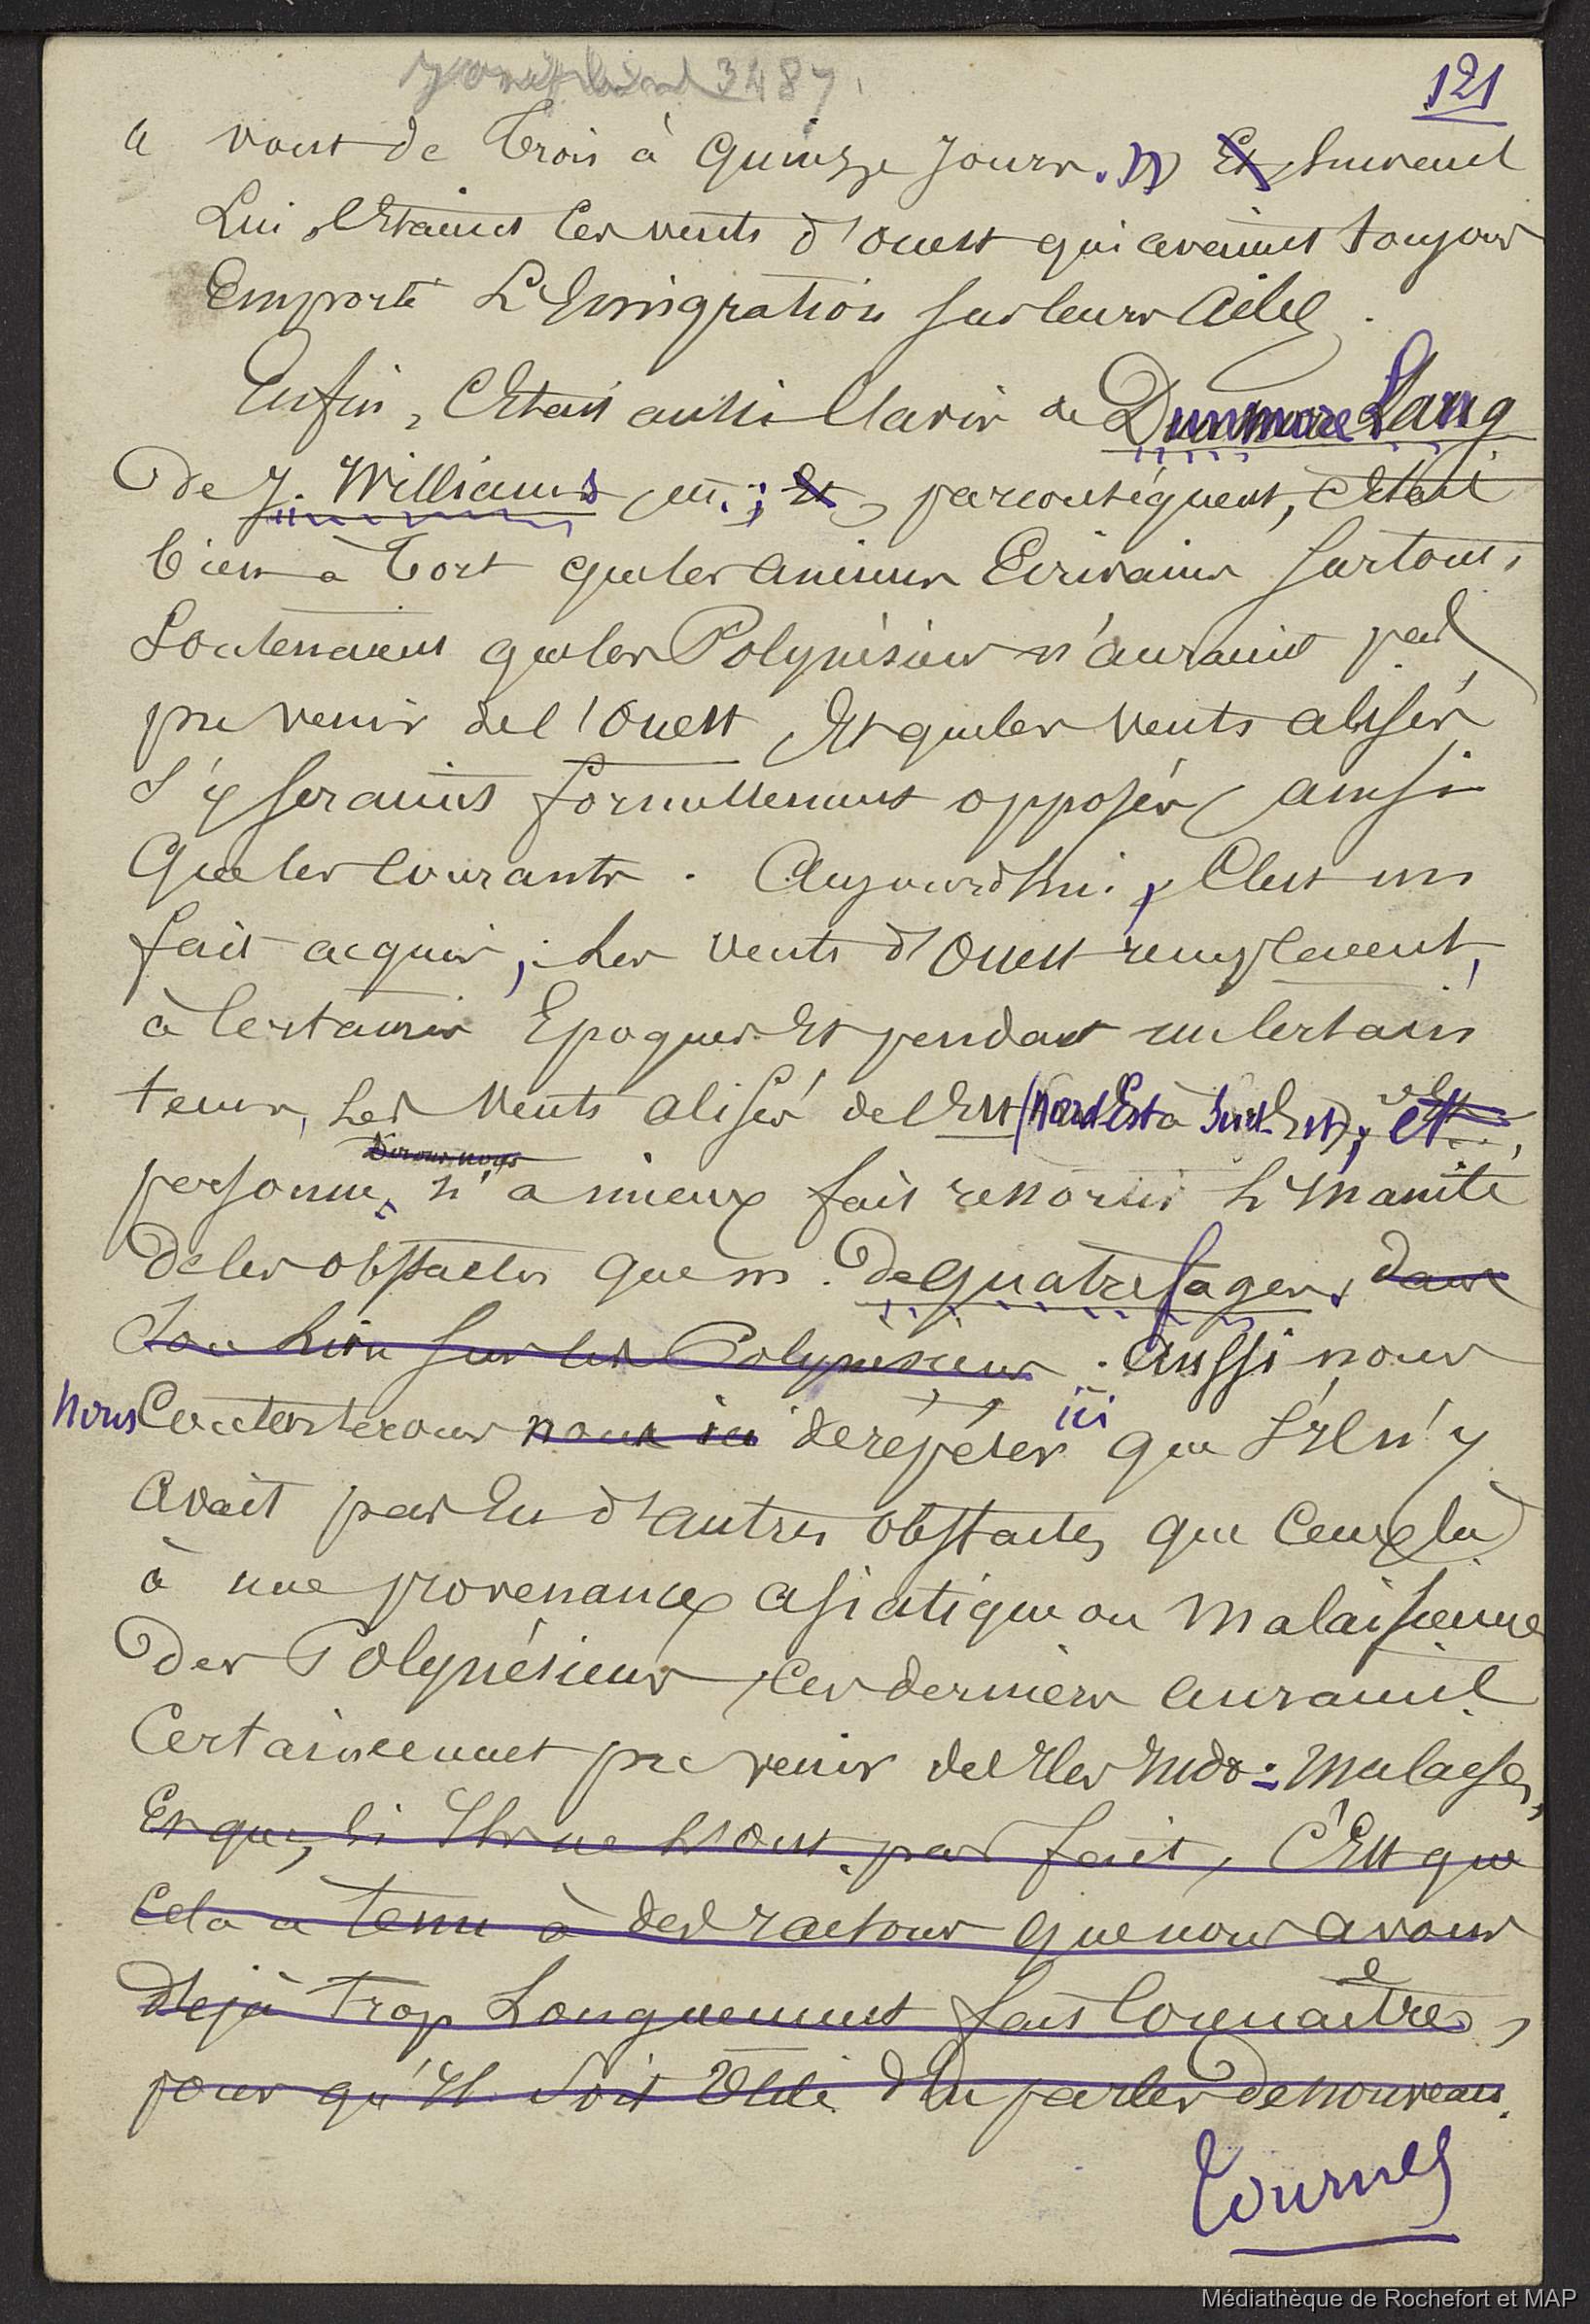 3487.
121
a vont de trois à quinze jours. » Et, suivant
lui, c'étaient les vents d'ouest qui avaient toujours
emporté l'Emigration sur leurs ailes.
Enfin, c'était aussi l'avis de Dunmore Lang
de J. Williams, etc.; Et, par conséquent, c'était
bien à tort que les anciens Ecrivains surtout,
soutenaient que les Polynésiens n'auraient pas
pu venir de l'Ouest Et que les vents alisés
s'y seraient formellement opposés, ainsi
que les courants. Aujourd'hui, c'est un
fait acquis, : les vents d'Ouest remplacent,
à certaines Epoques Et pendant un certain
temps, les vents alisés de l'Est (Nord Est à Sud-Est); et
Disons-nous
personne, n'a mieux fait ressortir l'Inanité
de ces obstacles que M. de Quatrefages, dans
son livre sur les Polynésiens. Aussi nous
nous contenterons nous ici de répéter ici que s'Il n'y
avait pas Eu d'autres obstacles que ceux là
à une provenance asiatique ou Malaisienne
des Polynésiens, ces derniers auraient
certainement pu venir des Iles Indo-Malaises,
Et que, si Ils ne l'ont pas fait, c'Est que
cela a tenu à des raisons que nous avons
déjà trop longuement fait connaître,
pour qu'Il soit Utile d'En parler de nouveau.
Tournez
Médiathèque de Rochefort et MAP